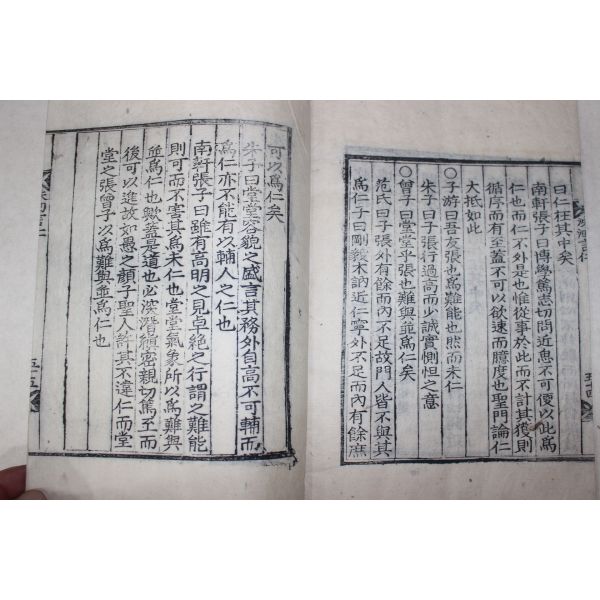 曰仁在其中矣
南軒張子曰博學篤志切問近思不可便以此爲
仁也而仁不外是也惟從事於此而不計其獲則
循序而有至蓋不可以欲速而臆度也聖門論仁
大抵如此
○子游曰吾友張也爲難能也然而未仁
朱子曰子張行過高而少誠實惻怛之意
○曾子曰堂堂乎張也難與並爲仁矣
范氏曰子張外有餘而內不足故門人皆不與其
爲仁子曰剛毅木訥近仁寧外不足而內有餘庶
可以爲仁矣
朱子曰堂堂容貌之盛言其務外自高不可輔而
爲仁亦不能有以輔人之仁也
南軒張子曰雖有高明之見卓絶之行謂之難能
則可而不害其爲未仁也堂堂氣象所以爲難與
並爲仁也歟蓋是道也必深潛縝密親切篤至而
後可以進故如愚之顏子聖人許其不違仁而堂
堂之張曾子以爲難與並爲仁也
五十五